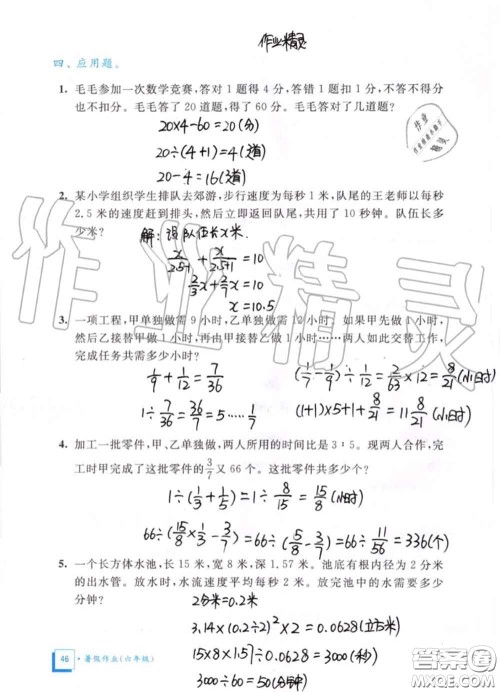 作业精灵
四、应用题。
1. 毛毛参加一次数学竞赛,答对1题得4分,答错1题扣1分,不答不得分
也不扣分。毛毛答了20道题,得了60分。毛毛答对了几道题?
20×4-60=20(分)
20÷(4+1)=4(道)
20-4=16(道)
2. 某小学组织学生排队去郊游,步行速度为每秒1米,队尾的王老师以每秒
2.5米的速度赶到排头,然后立即返回队尾,共用了10秒钟。队伍长多
少米?
解:设队伍长x米.
x/(2.5-1)+x/(2.5+1)=10
2/3x+2/7x=10
x=10.5
3. 一项工程,甲单独做需9小时,乙单独做需12小时。如果甲先做1小时,
然后乙接替甲做1小时,再由甲接替乙做1小时……两人如此交替工作,
完成任务共需多少小时?
1/9+1/12=7/36 (1/7-1/9)÷1/12=2/63×12=8/21(小时)
1÷7/36=5……1/7 (1+1)×5+1+8/21=11 8/21(小时)
4. 加工一批零件,甲、乙单独做,两人所用的时间比是3:5。现两人合作,完
工时甲完成了这批零件的3/7又66个。这批零件共多少个?
1÷(1/3+1/5)=1÷8/15=15/8(小时)
66÷(15/8×1/3-3/7)=66÷(5/8-3/7)=66÷11/56=336(个)
5. 一个长方体水池,长15米,宽8米,深1.57米。池底有根内径为2分米
的出水管。放水时,水流速度平均每秒2米。放完池中的水需要多少
分钟?
2分米=0.2米
3.14×(0.2÷2)²×2=0.0628(立方米)
15×8×1.57÷0.0628=3000(秒)
3000÷60=50(分钟)
46 · 暑假作业(六年级)
作业精灵
答案圈
MXQE.COM